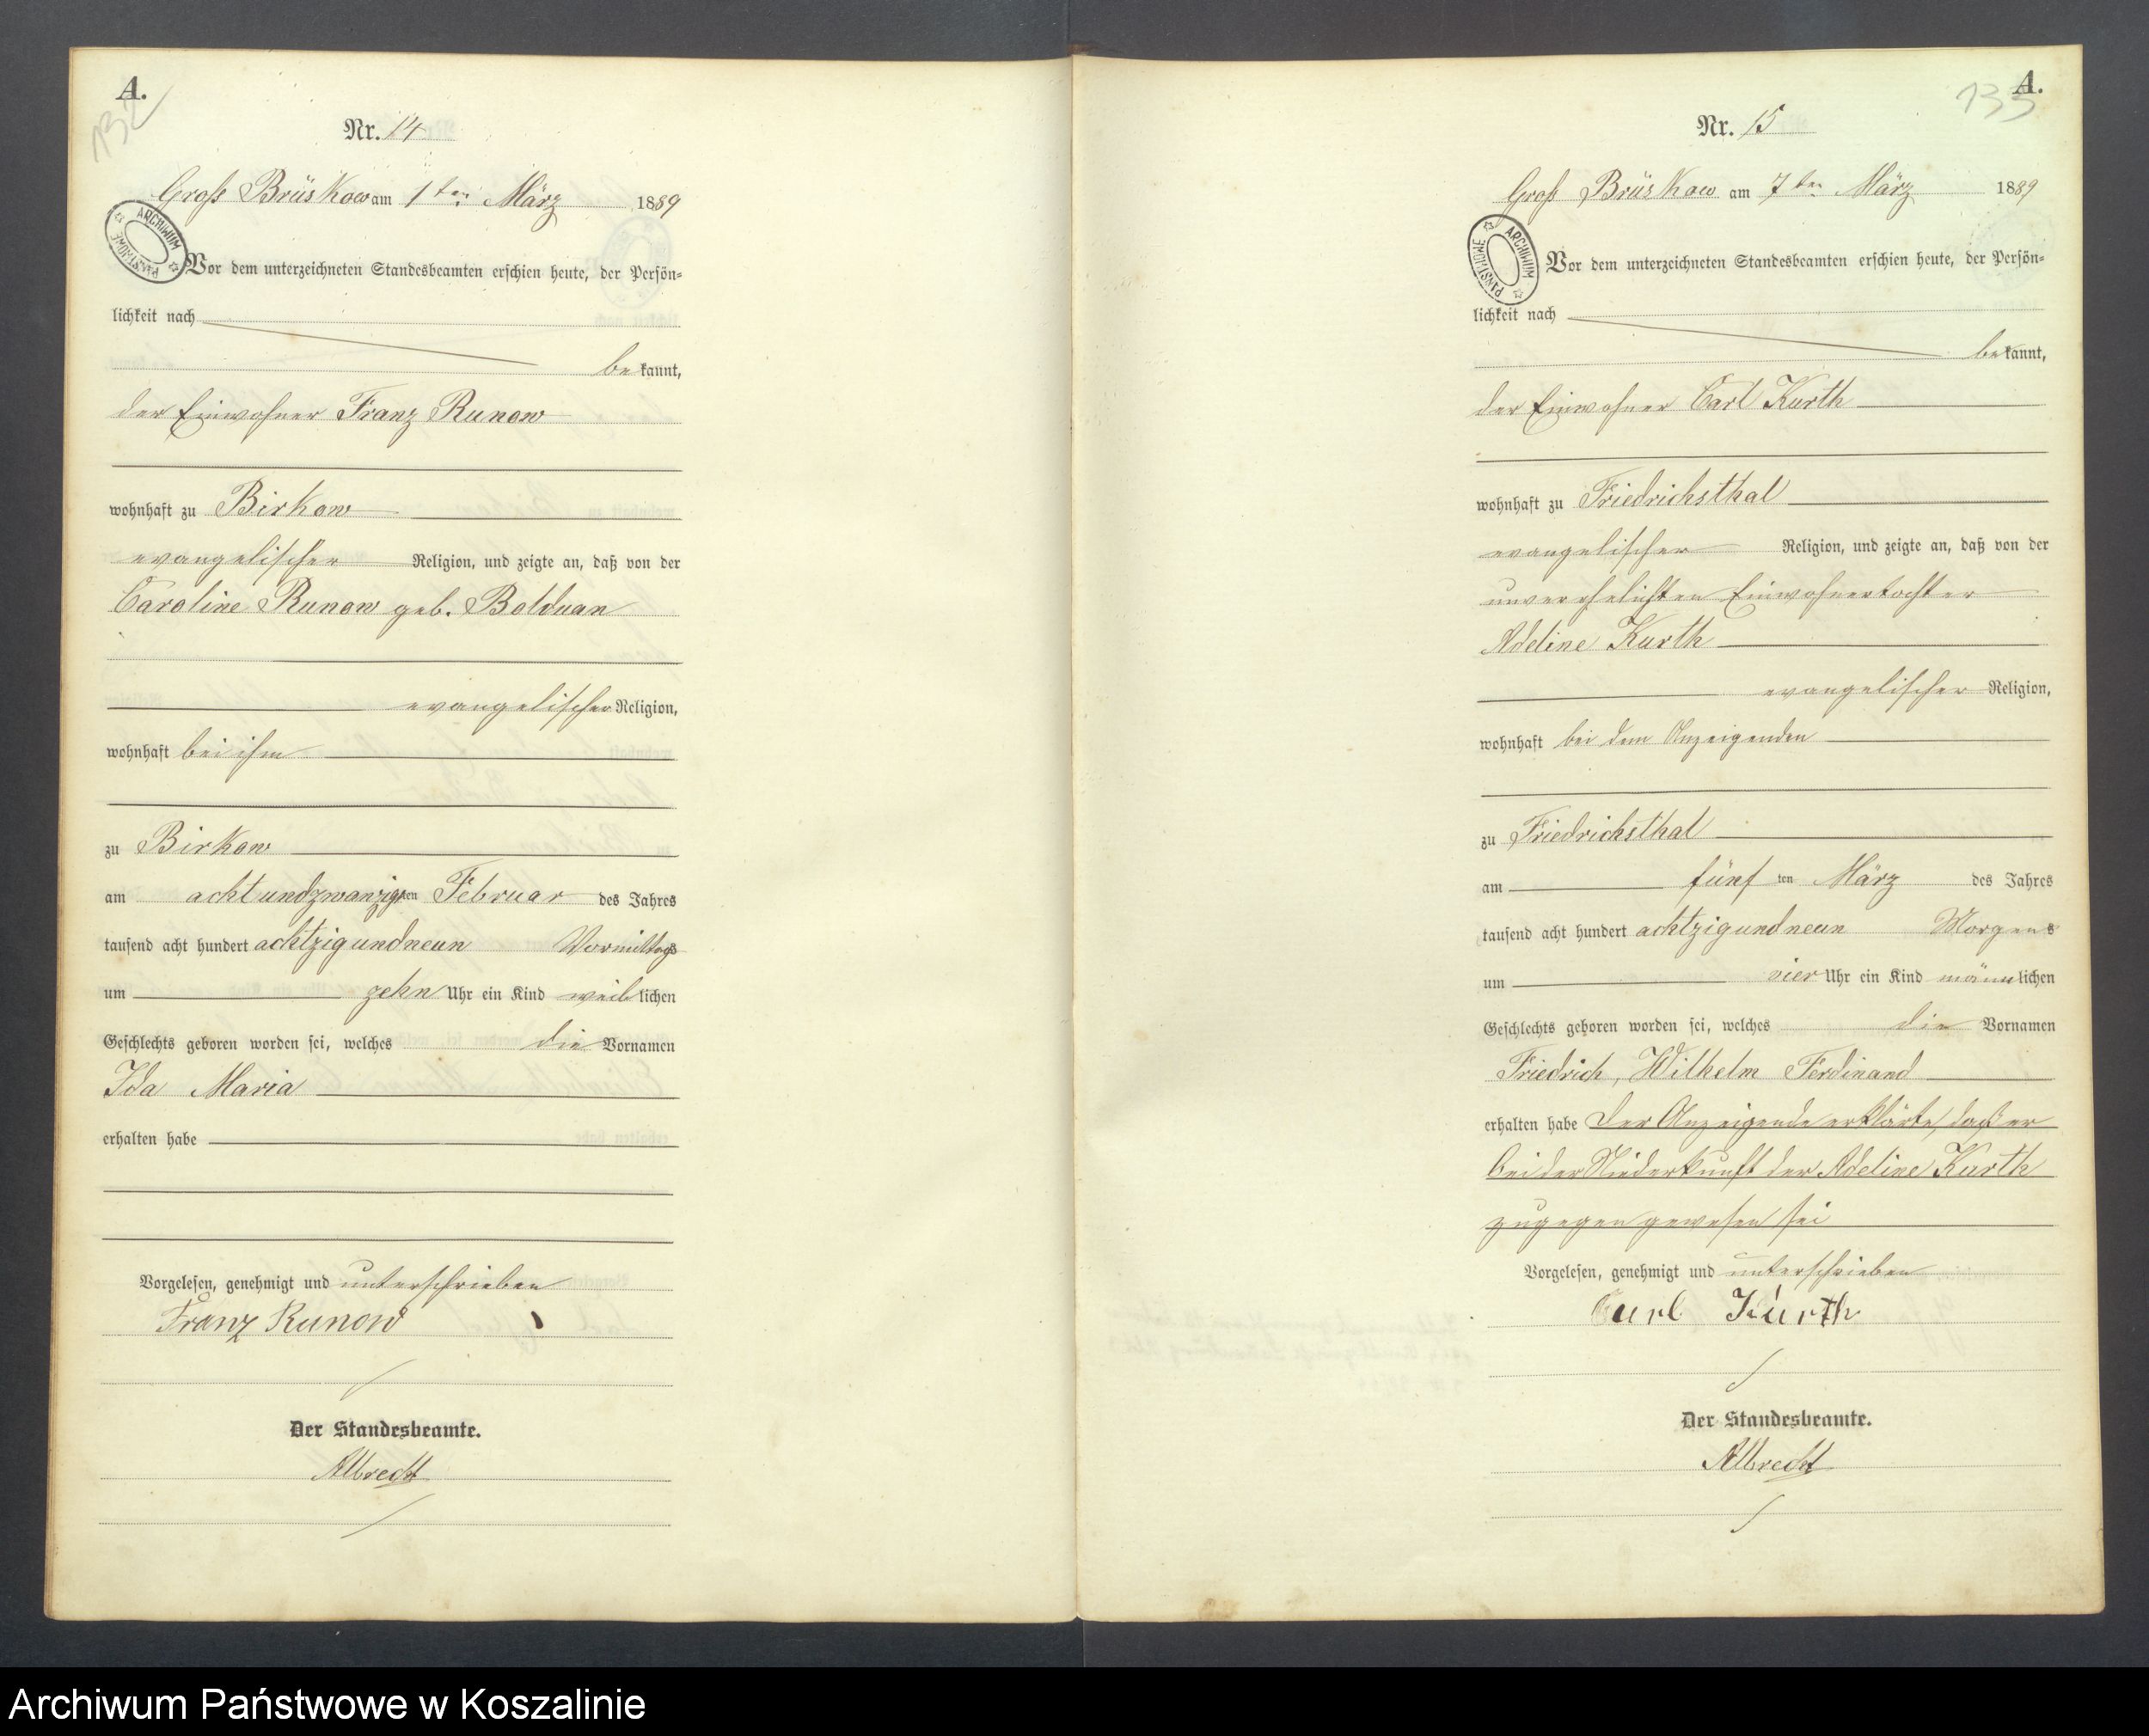 A.
132
Nr. 14
Groß Brüskow am 1ten März 1889
ARCHIWUM PAŃSTWOWE
Vor dem unterzeichneten Standesbeamten erschien heute, der Persön-
lichkeit nach
bekannt,
der Einwohner Franz Runow
wohnhaft zu Birkow
evangelischer Religion, und zeigte an, daß von der
Caroline Runow geb. Bolduan
evangelischer Religion,
wohnhaft bei ihm
zu Birkow
am achtundzwanzigsten Februar des Jahres
tausend acht hundert achtzigundneun Vormittags
um zehn Uhr ein Kind weiblichen
Geschlechts geboren worden sei, welches die Vornamen
Ida Maria
erhalten habe
Vorgelesen, genehmigt und unterschrieben
Franz Runow
Der Standesbeamte.
Albrecht
A.
133
Nr. 15
Groß Brüskow am 7ten März 1889
ARCHIWUM PAŃSTWOWE
Vor dem unterzeichneten Standesbeamten erschien heute, der Persön-
lichkeit nach
bekannt,
der Einwohner Carl Kurth
wohnhaft zu Friedrichsthal
evangelischer Religion, und zeigte an, daß von der
unverehelichten Einwohnertochter
Adeline Kurth
evangelischer Religion,
wohnhaft bei dem Anzeigenden
zu Friedrichsthal
am fünften März des Jahres
tausend acht hundert achtzigundneun Morgens
um vier Uhr ein Kind männlichen
Geschlechts geboren worden sei, welches die Vornamen
Friedrich, Wilhelm Ferdinand
erhalten habe Der Anzeigende erklärte, daß er
bei der Niederkunft der Adeline Kurth
zugegen gewesen sei
Vorgelesen, genehmigt und unterschrieben
Carl Kurth
Der Standesbeamte.
Albrecht
Archiwum Państwowe w Koszalinie